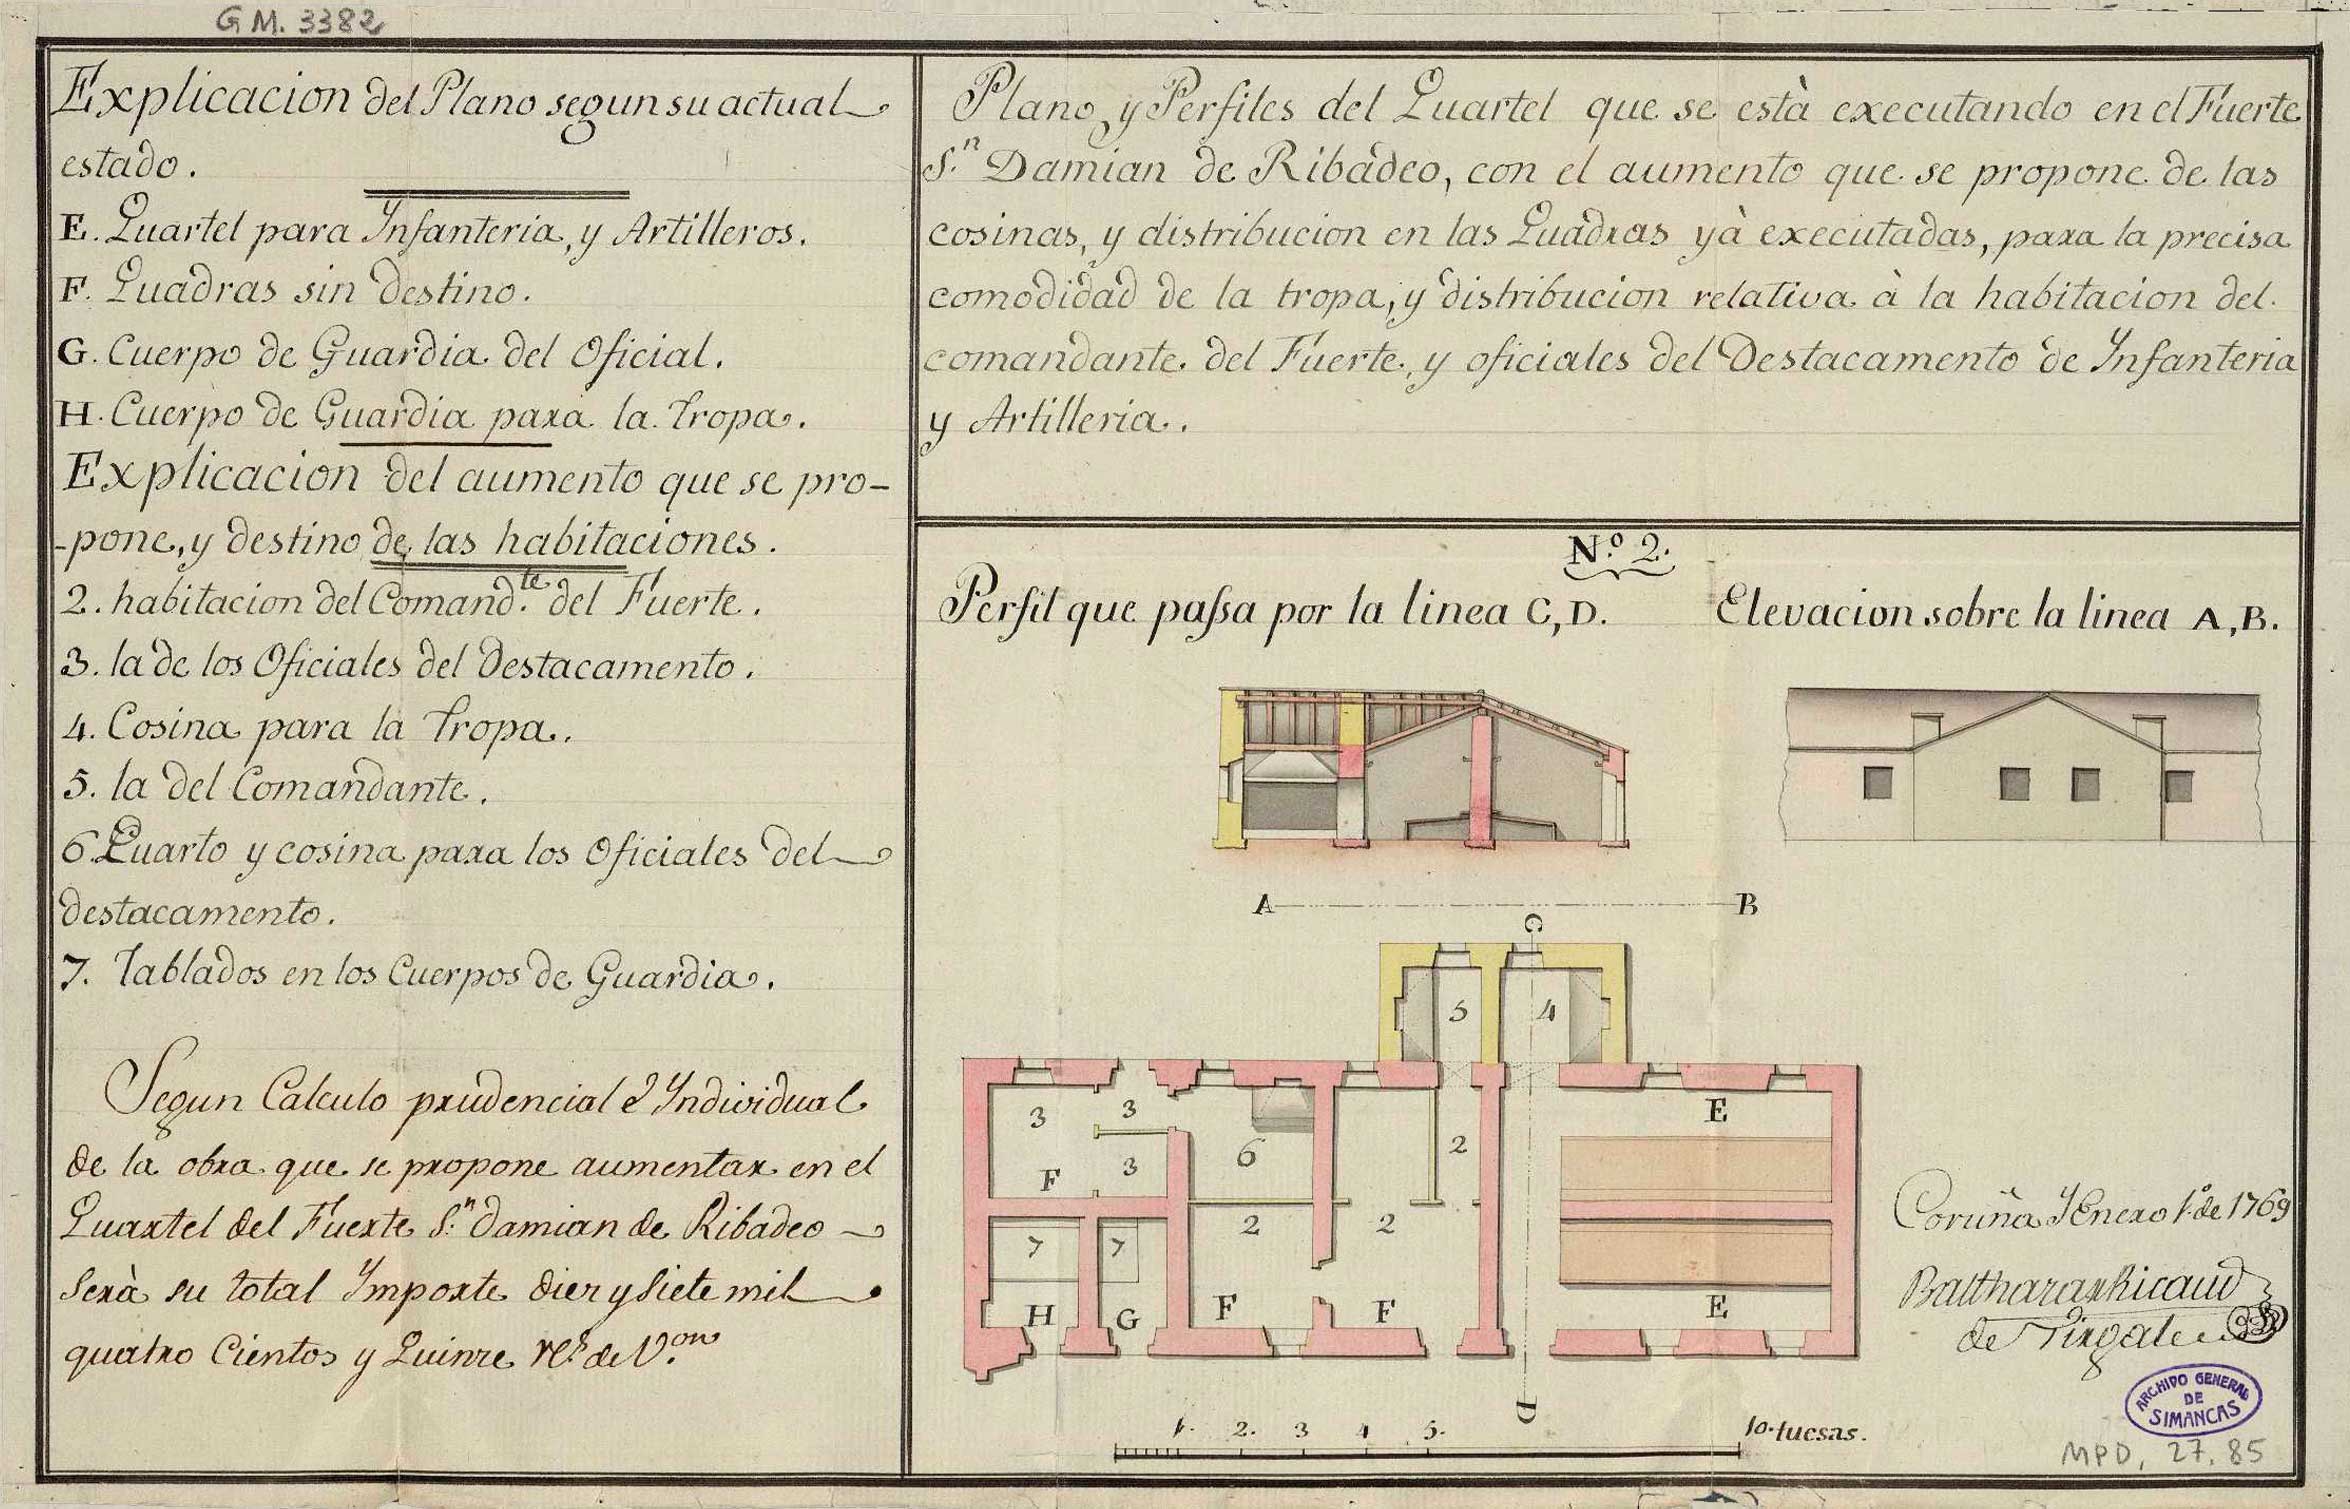 G M. 3382
Explicacion del Plano segun su actual
estado.
E. Quartel para Ynfanteria, y Artilleros.
F. Quadras sin destino.
G. Cuerpo de Guardia del Oficial.
H. Cuerpo de Guardia para la Tropa.
Explicacion del aumento que se pro-
-pone, y destino de las habitaciones.
2. habitacion del Comand.te del Fuerte.
3. la de los Oficiales del Destacamento.
4. Cosina para la Tropa.
5. la del Comandante.
6. Quarto y cosina para los Oficiales del
destacamento.
7. Tablados en los Cuerpos de Guardia.
Segun Calculo prudencial è Yndividual
de la obra que se propone aumentar en el
Quartel del Fuerte S.n Damian de Ribadeo
serà su total Ymporte diez y siete mil
quatro Cientos y Quinze r.s de V.on
Plano, y Perfiles del Quartel que se està executando en el Fuerte
S.n Damian de Ribadeo, con el aumento que se propone de las
cosinas, y distribucion en las Quadras yà executadas, para la precisa
comodidad de la tropa, y distribucion relativa à la habitacion del
comandante del Fuerte, y oficiales del Destacamento de Ynfanteria
y Artilleria.
N.o 2.
Perfil que passa por la linea C, D.
Elevacion sobre la linea A, B.
A B
C
5 4
3 3 E
6 2
3
F
2 2
7 7
H G F F E
D
1. 2. 3 4 5. 10. tuesas.
Coruña Y Enero 1.o de 1769
Balthazar Ricaud
de Tirgale
ARCHIVO GENERAL
DE
SIMANCAS
MPD, 27, 85